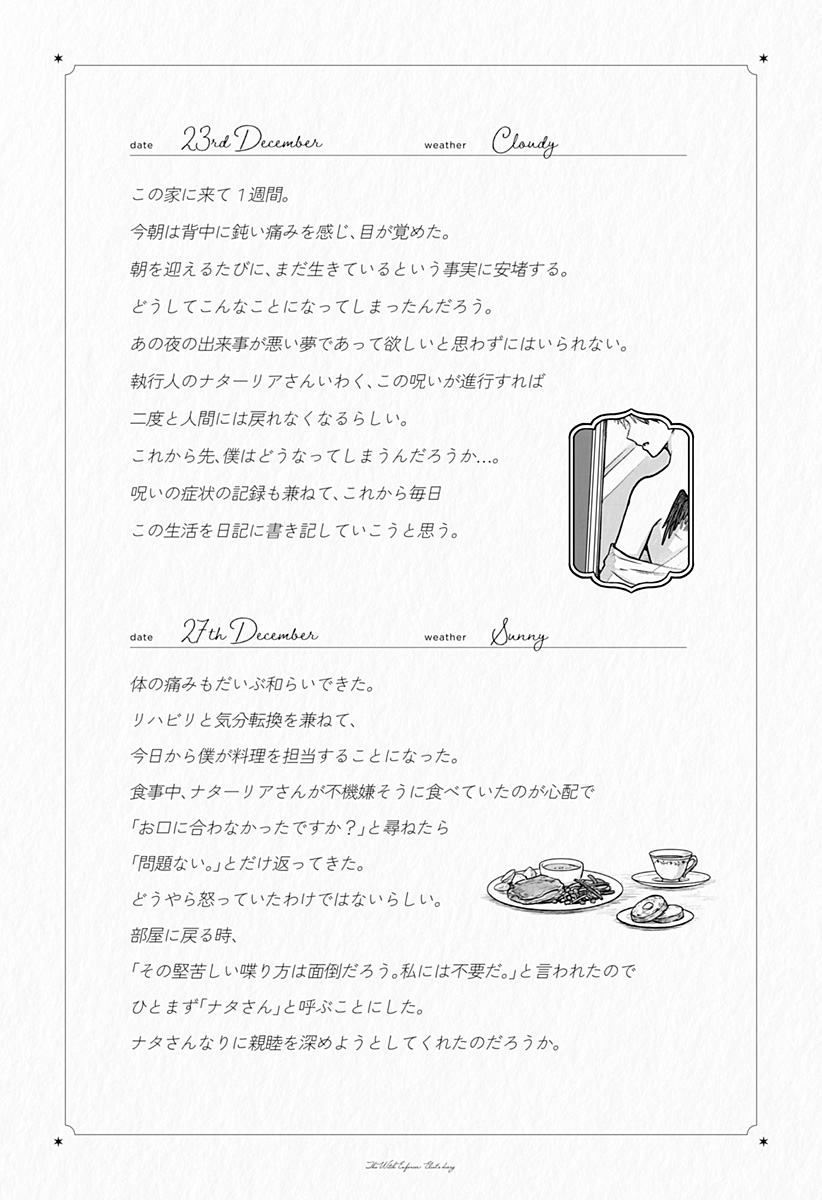 date 23rd December weather Cloudy
この家に来て1週間。
今朝は背中に鈍い痛みを感じ、目が覚めた。
朝を迎えるたびに、まだ生きているという事実に安堵する。
どうしてこんなことになってしまったんだろう。
あの夜の出来事が悪い夢であって欲しいと思わずにはいられない。
執行人のナターリアさんいわく、この呪いが進行すれば
二度と人間には戻れなくなるらしい。
これから先、僕はどうなってしまうんだろうか…。
呪いの症状の記録も兼ねて、これから毎日
この生活を日記に書き記していこうと思う。
date 27th December weather Sunny
体の痛みもだいぶ和らいできた。
リハビリと気分転換を兼ねて、
今日から僕が料理を担当することになった。
食事中、ナターリアさんが不機嫌そうに食べていたのが心配で
「お口に合わなかったですか？」と尋ねたら
「問題ない。」とだけ返ってきた。
どうやら怒っていたわけではないらしい。
部屋に戻る時、
「その堅苦しい喋り方は面倒だろう。私には不要だ。」と言われたので
ひとまず「ナタさん」と呼ぶことにした。
ナタさんなりに親睦を深めようとしてくれたのだろうか。
The Witch